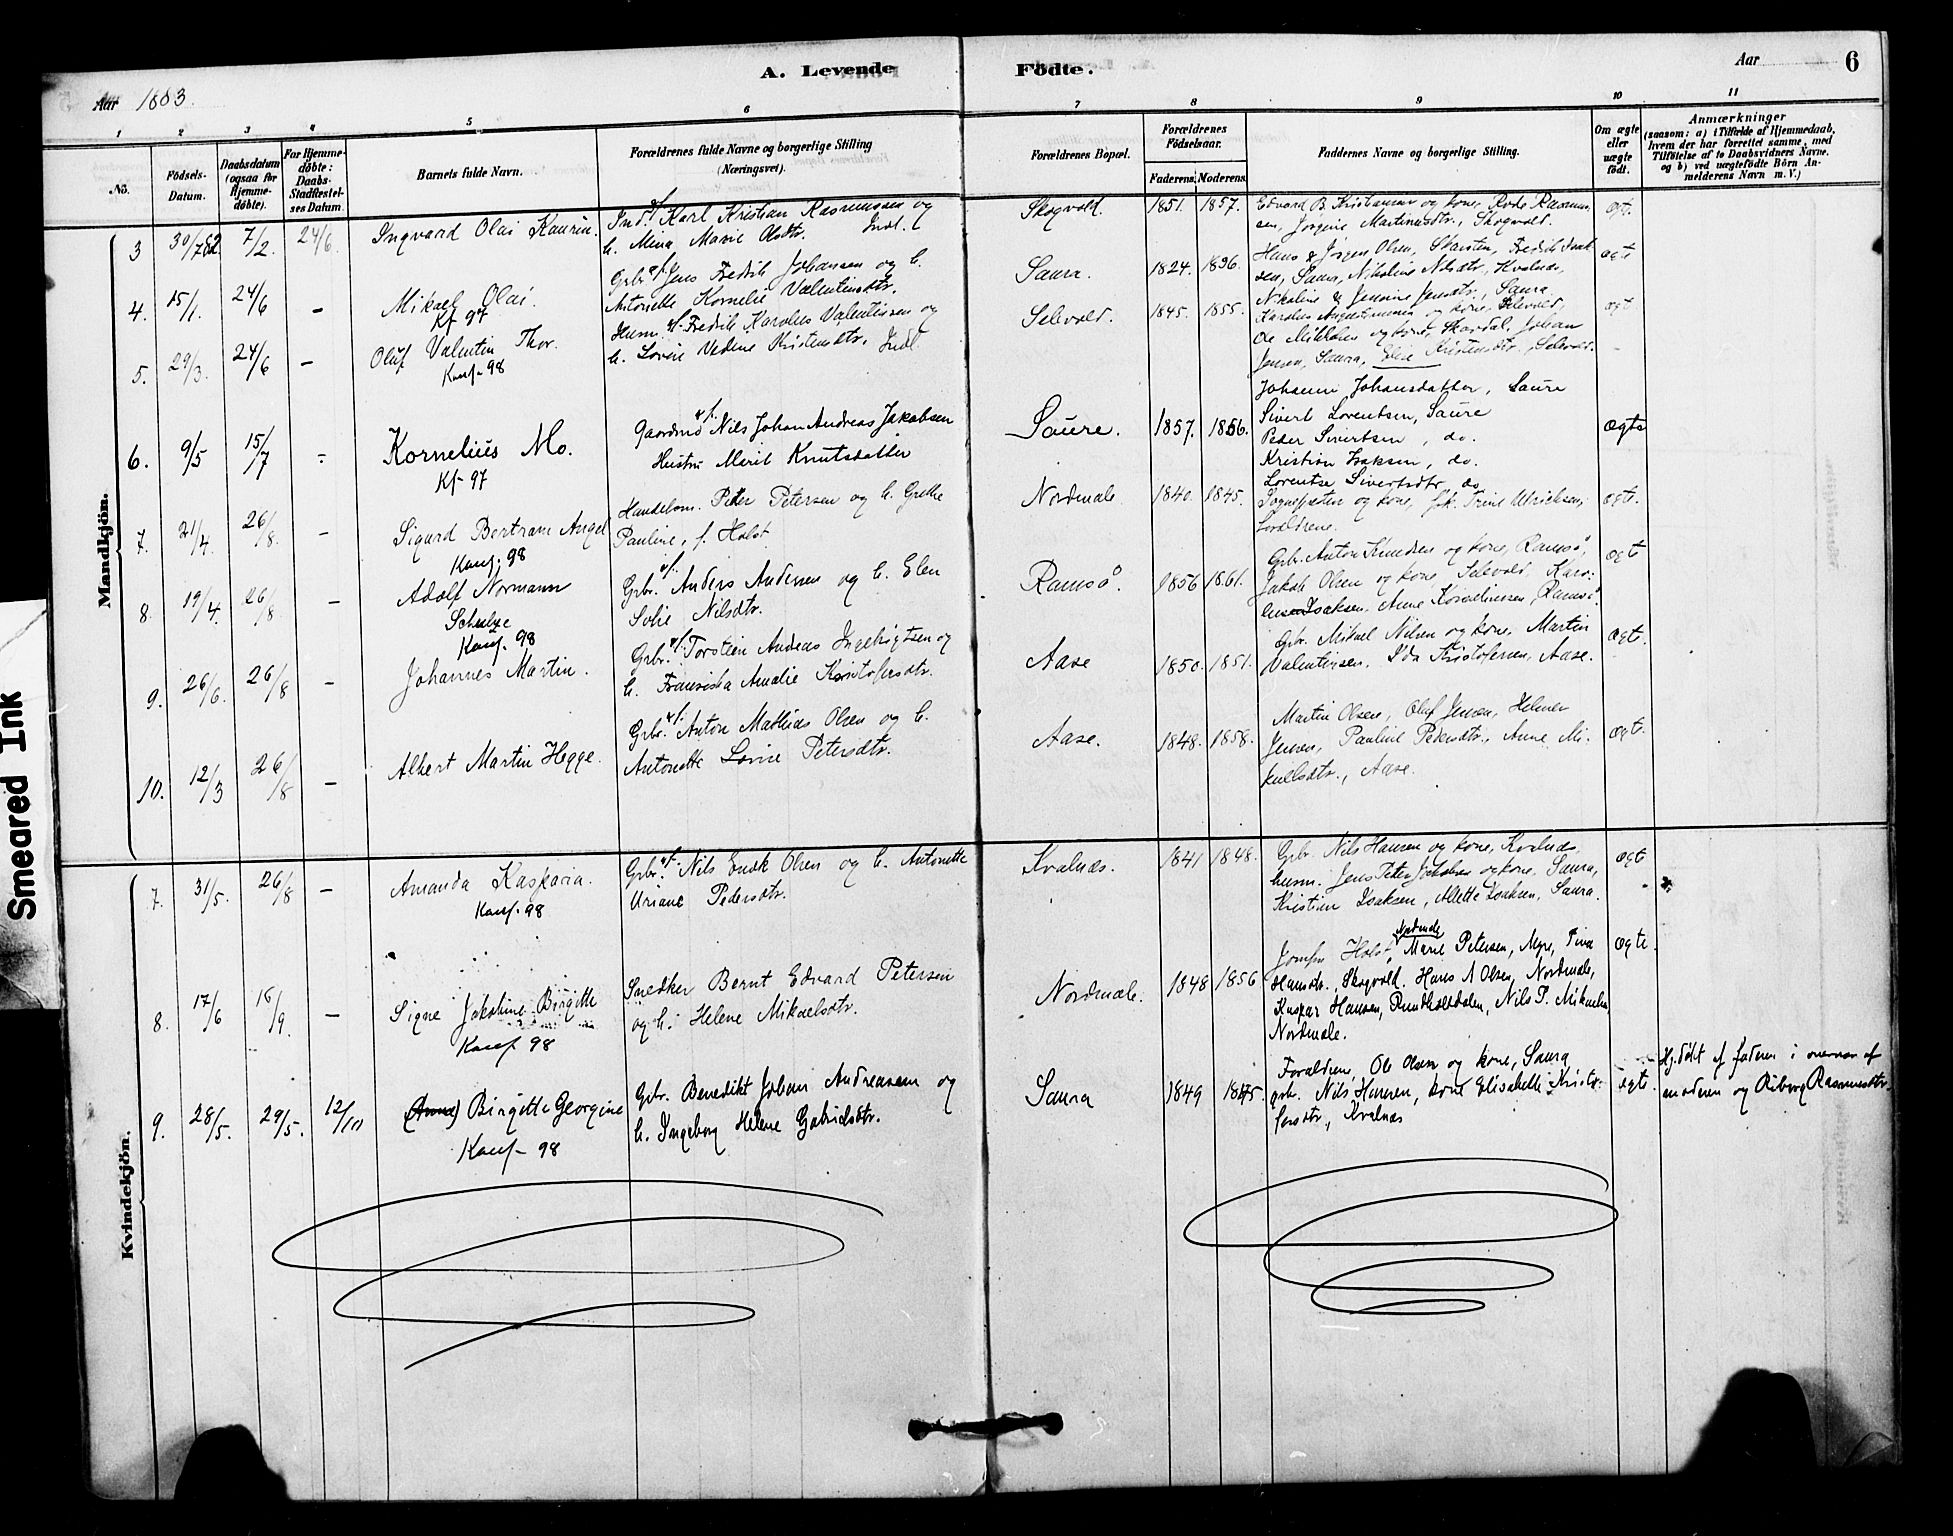 A. Levende Födte.
Aar 6
Aar 1883
1 2 3 4 5 6 7 8 9 10 11
No.
Födsels-Datum.
Daabsdatum (ogsaa for Hjemme-döbte).
For Hjemme-döbte: Daabs-Stadfæstel-ses Datum.
Barnets fulde Navn.
Forældrenes fulde Navne og borgerlige Stilling (Næringsvei).
Forældrenes Bopæl.
Forældrenes Födselsaar.
Faderens. Moderens.
Faddernes Navne og borgerlige Stilling.
Om ægte eller uægte födt.
Anmærkninger
(saasom: a) i Tilfælde af Hjemmedaab, hvem der har forrettet samme, med Tilföielse af to Daabsvidners Navne. og b) ved uægtefödte Börn An-melderens Navn m. V.)
Smeared Ink
Mandkjön.
3 30/7 82 7/2. 24/6. Ingvard Olai Kaurin.
Ind. Karl Kristian Rasmussen og
h. Mina Marie Olsdtr. Indl.
Skogvold. 1851. 1857.
Edvard B. Kristiansen og kone,
sen, Jorgine Martinusdtr., Skogvold.
ægt.
4. 15/1. 24/6 - Mikael Olai.
Kf 97
Grbr. Jens Fredrik Johansen og h.
Antonette Kornelie Valentinsdtr.
Saura. 1824. 1836.
Hans & Jörgen Olsen, Skarsten, Fredrik Isak
sen, Saura, Nikoline Nilsdtr., Kvalnæs,
Nikoline & Jensine Jensdtr., Saura
ægt
5. 29/3. 24/6 - Oluf Valentin Thor.
Konf- 98
Husm. Fredrik Karolus Valentinsen og
h. Lovise Kristensdtr. Indl
Selvold. 1845. 1855.
Karolus og kone, Selvold,
Ole Mikkelsen og kone, Skardal, Johan
Jensen, Saura, Kristensdtr., Selvold.
ægt
6. 9/5 15/7 - Kornelius Mo.
Kf- 97
Gaardmd Nils Johan Andreas Jakobsen
Hustru Marit Knutsdatter
Saure. 1857. 1856.
Johanna Johansdatter, Saure
Sivert Lorentsen, Saure
Peder Sivertsen, do.
Kristian Isaksen, do.
Lorentse Sivertsdtr do
ægte
7. 21/4. 26/8. - Sigurd Bertram Angel
Konf; 98
Handelsm. Peter Petersen og h. Grethe
Pauline, f. Holst
Nordmæle 1840. 1845.
Sognepresten og kone, frk. Trine Ulriksen,
Forældrene.
ægte.
8. 19/4. 26/8. - Adolf Normann
Schulze
Konf. 98
Grbr. Anders Andersen og h. Elen
Sofie Nilsdtr.
Ramsö. 1856 1861.
Grbr. Anton Knudsen og kone, Ramsö,
Jakob Olsen og kone, Selvold, Karo-
Isaksen, Anne Korneliussen, Ramsö.
ægte
9. 26/6. 26/8 - Johannes Martin.
Grbr. Torstein Andreas Ingebrigtsen og
h. Fransiska Amalie Kristofersdtr.
Aase 1850. 1851.
Grbr. Mikael Nilsen og kone, Martin
Valentinsen, Ida Kristofersen, Aase.
ægte.
10. 12/3 26/8 - Albert Martin Hegge.
Grbr. Anton Mathias Olsen og h.
Antonette Lovise Petersdtr.
Aase. 1848. 1858.
Martin Olsen, Oluf Jensen, Helmer
Jensen, Pauline Pedersdtr., Anne Mi-
kalsdtr., Aase.
ægte.
Kvindekjön.
7. 31/5. 26/8 - Amanda Kasparia.
Konf- 98
Grbr. Nils Enok Olsen og h. Antonette
Uriane Pedersdtr.
Kvalnæs. 1841 1848.
Grbr. Nils Hansen og kone, Kvalnæs,
husm. Jens Peter Jakobsen og kone, Saura,
Kristian Isaksen, Alette Isaksen, Saura.
ægte
8. 17/6 16/9. - Signe Jakobine Birgitte
Konf 98
Snedker Bernt Edvard Petersen
og h. Helene Mikaelsdtr.
Nordmæle. 1848 1856
Nordmæle
Jomfru Holst, Marie Petersen, Myre, Tina
Hansdtr., Skogvold. Hans A Olsen, Nordmæle,
Kaspar Hansen, Rundholtdalen, Nils P. Mikaelsen
Nordmæle.
ægte.
9. 28/5. 29/5. 12/10 (Anna) Birgitte Georgine
Konf- 98
Grbr. Benedikt Johan Andreassen og
h. Ingeborg Helene Gabrielsdtr.
Saura 1849
Forældrene, Ole Olsen og kone, Saura
grbr. Nils Hansen, kone Elisabeth Kristo-
fersdtr., Kvalnæs
ægte.
Hj. döbt af faderen i overvær af
moderen og Riborg Rasmusdtr.